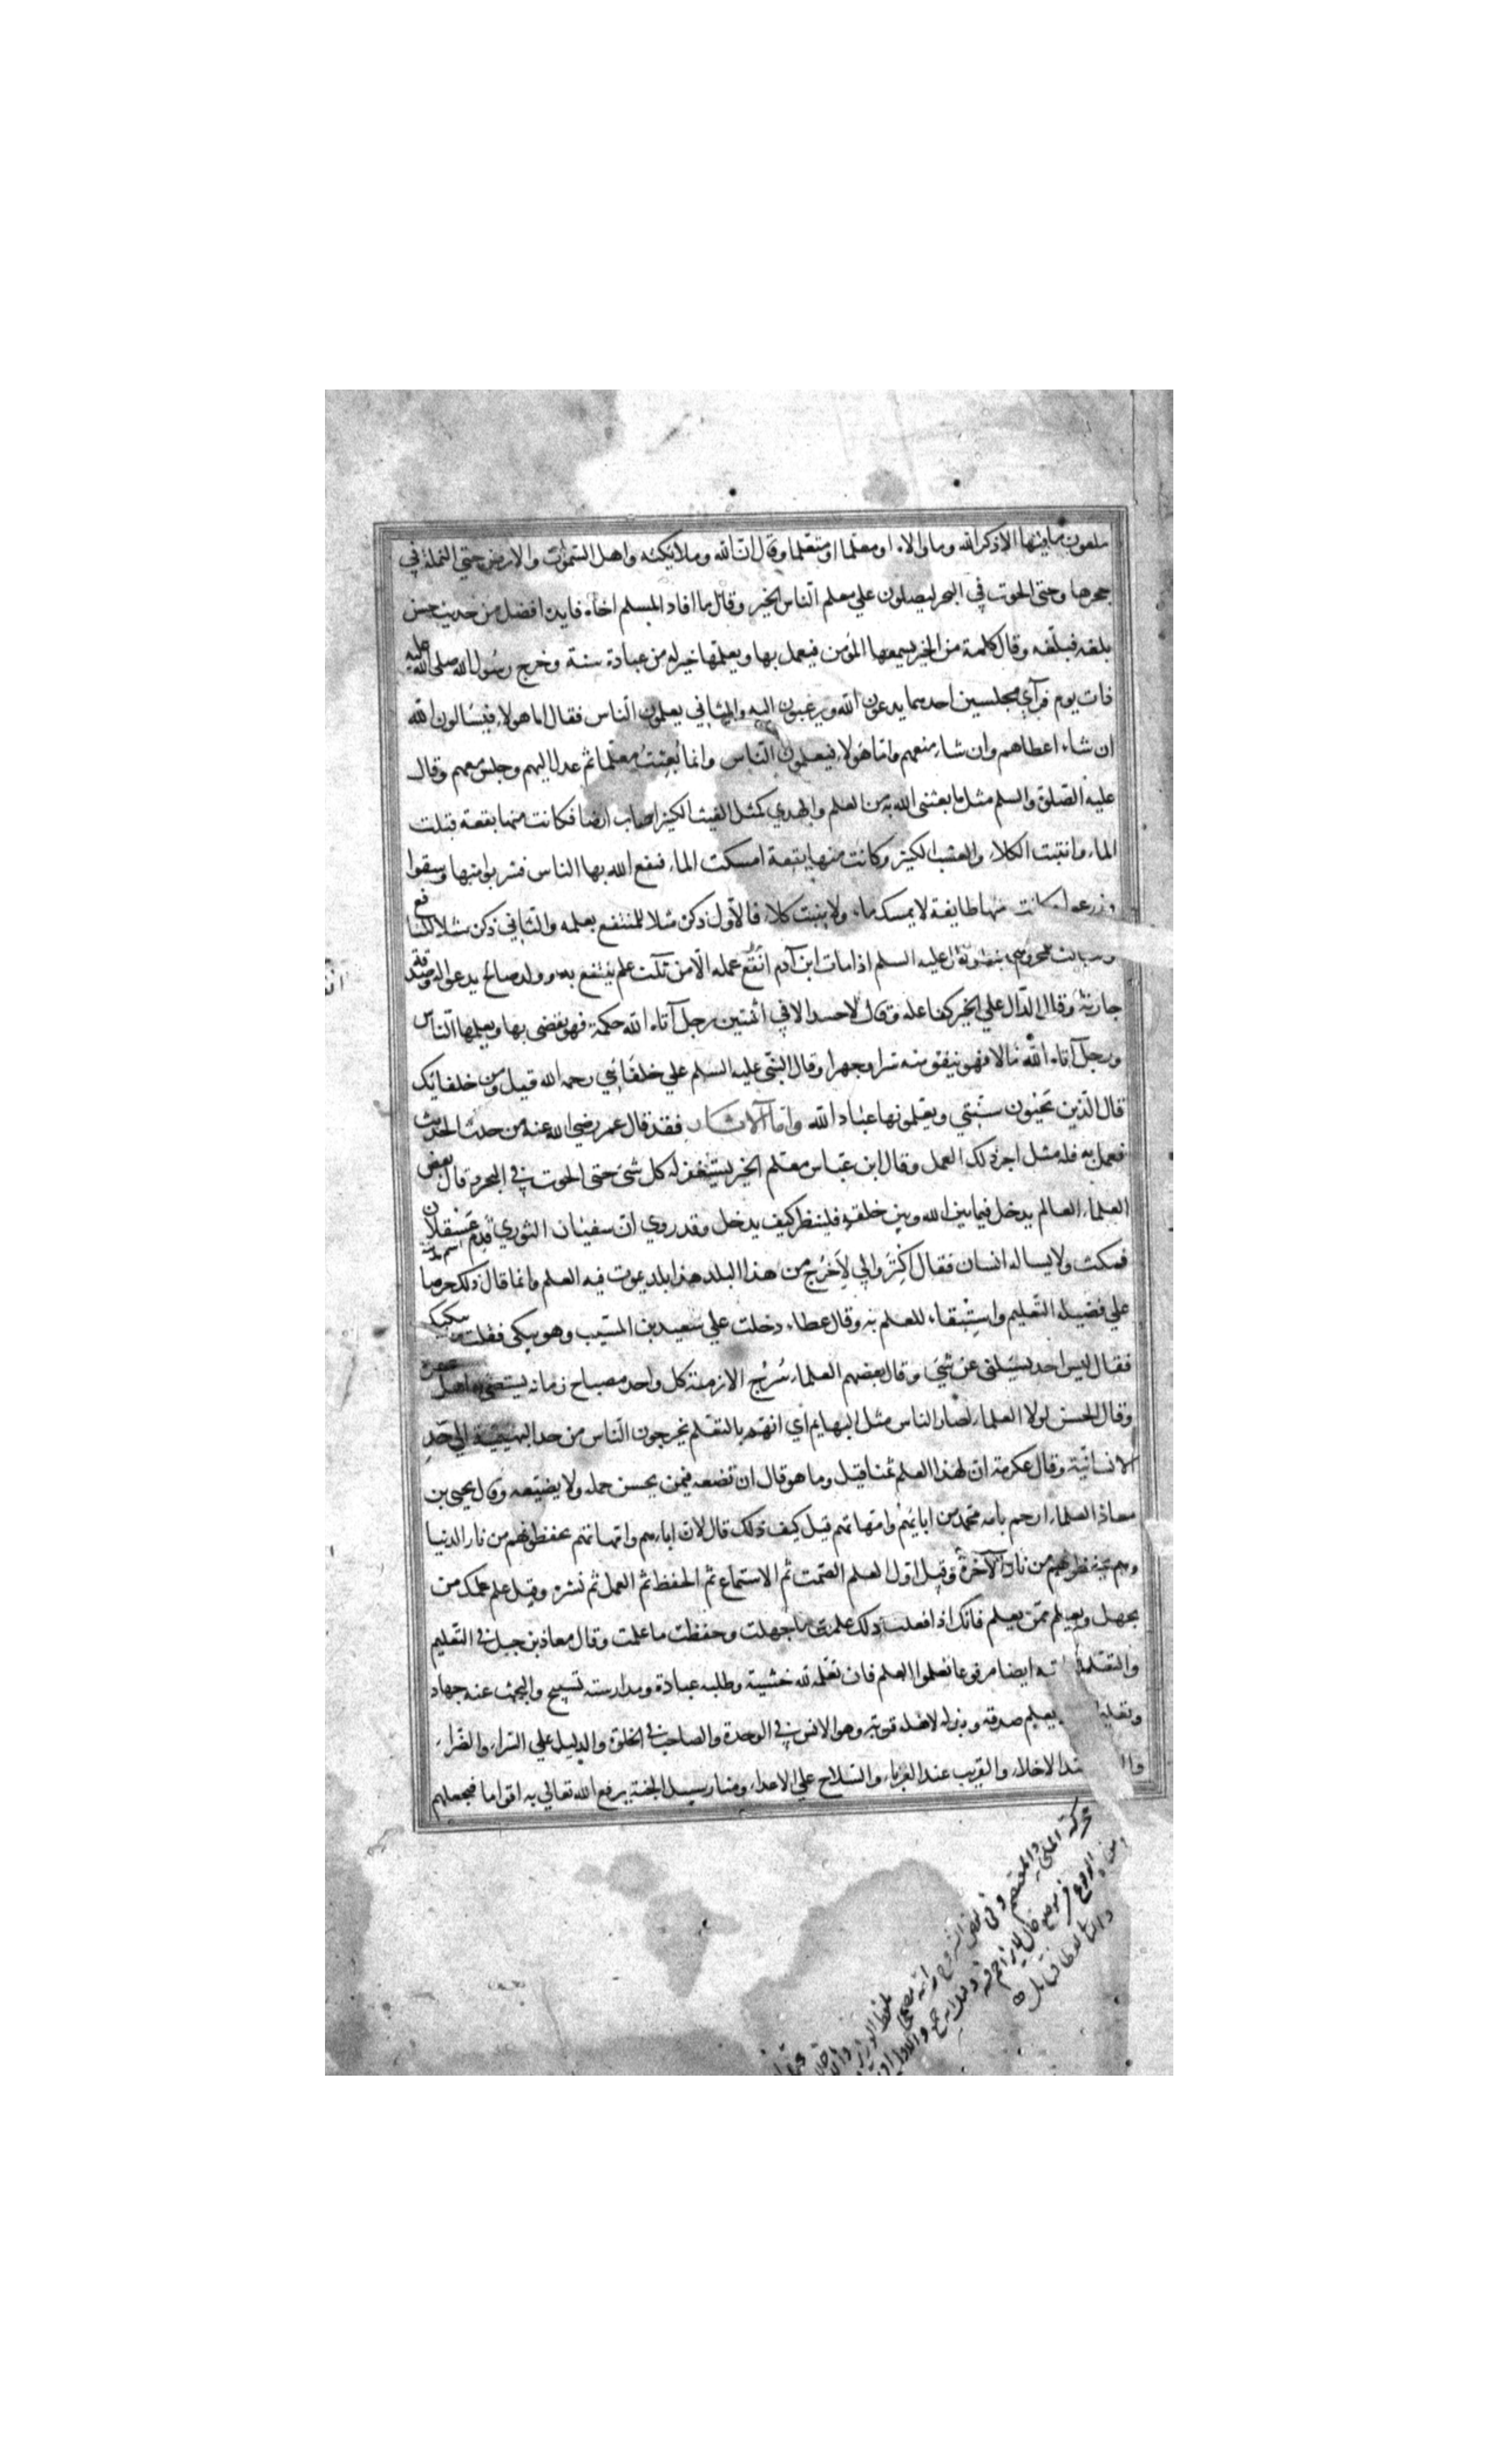 ملعون ما فيها الا ذكر الله وما والاه او معلما او متعلما وقال ان الله وملايكته واهل السموات والارض حتي النملة في
جحرها وحتي الحوت في البحر ليصلون علي معلم الناس الخير وقال ما افاد المسلم اخاه فايدة افضل من حديث حسن
بلغه فبلغه وقال كلمة من الخير يسمعها المؤمن فيعمل بها ويعلمها خير له من عبادة سنة وخرج رسول الله صلي الله عليه
ذات يوم فرآي مجلسين احدهما يدعون الله ويرغبون اليه والثاني يعلمون الناس فقال اما هولاء فيسالون الله
ان شاء اعطاهم وان شاء منعهم واما هولاء فيعلمون الناس وانما بُعِثتُ معلما ثم عدل اليهم وجلس معهم وقال
عليه الصلوة والسلم مثل ما بعثني الله به من العلم والهدي كمثل الغيث الكثير اصاب ارضا فكانت منها بقعة قبلت
الماء وانبتت الكلاء والعشب الكثير وكانت منها بقعة امسكت الماء فنفع الله بها الناس فشربوا منها وسقوا
وزرعوا وكانت منها طايفة لا يمسك ماء ولا ينبت كلاء فالاول ذكن مثلا للمنتفع بعلمه والثاني ذكن مثلا للنافع
عليه السلم اذا مات ابن آدم انقطع عمله الا من ثلث علم ينتفع به وولد صالح يدعو له وصدقة
جارية وقال الدال علي الخير كفاعله وقال لا حسد الا في اثنتين رجل آتاه الله حكمة فهو يقضي بها ويعلمها الناس
ورجل آتاه الله مالا فهو ينفق منه سرا وجهرا وقال النبي عليه السلم علي خلفائي رحمه الله قيل ومن خلفائك
قال الذين يحيون سنتي ويعلمونها عباد الله واما الآثار فقد قال عمر رضي الله عنه من حدث الحديث
فعمل به فله مثل اجر ذلك العمل وقال ابن عباس معلم الخير يستغفر له كل شئ حتى الحوت في البحر وقال بعض
العلماء العالم يدخل فيما بين الله وبين خلقه فلينظر كيف يدخل وقد روي ان سفيان الثوري قدم عسقلان
فمكث ولا يساله انسان فقال اكتروا لي لاخرج من هذا البلد هذا بلد يموت فيه العلم وانما قال ذلك حرصا
علي فضيلة التعليم واستبقاء للعلم به وقال عطاء دخلت علي سعيد بن المسيب وهو يبكي فقلت ما يبكيك
فقال ليس احد يسئلني عن شئ وقال بعضهم العلماء سُرُج الازمنة كل واحد مصباح زمانه يستضئ به اهل عصره
وقال الحسن لولا العلماء لصار الناس مثل البهايم اي انهم بالتعلم يخرجون الناس من حد البهيمية الي حد
الانسانية وقال عكرمة ان لهذا العلم ثمنا قيل وما هو قال ان تضعه فيمن يحسن حمله ولا يضيعه وقال يحيى بن
معاذ العلماء ارحم بامة محمد من ابائهم وامهاتهم قيل كيف ذلك قال لان اباءهم وامهاتهم يحفظونهم من نار الدنيا
وهم يحفظونهم من نار الآخرة وقيل اول العلم الصمت ثم الاستماع ثم الحفظ ثم العمل ثم نشره وقيل علم علمك من
يجهل وتعلم ممن يعلم فانك اذا فعلت ذلك علمت ما جهلت وحفظت ما علمت وقال معاذ بن جبل في التعليم
والتعلم ايضا مرفوعا تعلموا العلم فان تعلمه لله خشية وطلبه عبادة ومدارسته تسبيح والبحث عنه جهاد
وتعليمه يعلم صدقة وبذله لاهله قربة وهو الانس في الوحدة والصاحب في الخلوة والدليل علي السراء والضراء
عند الاخلاء والقريب عند الغرباء والسلاح علي الاعداء ومنار سبيل الجنة يرفع الله تعالي به اقواما فيجعلهم